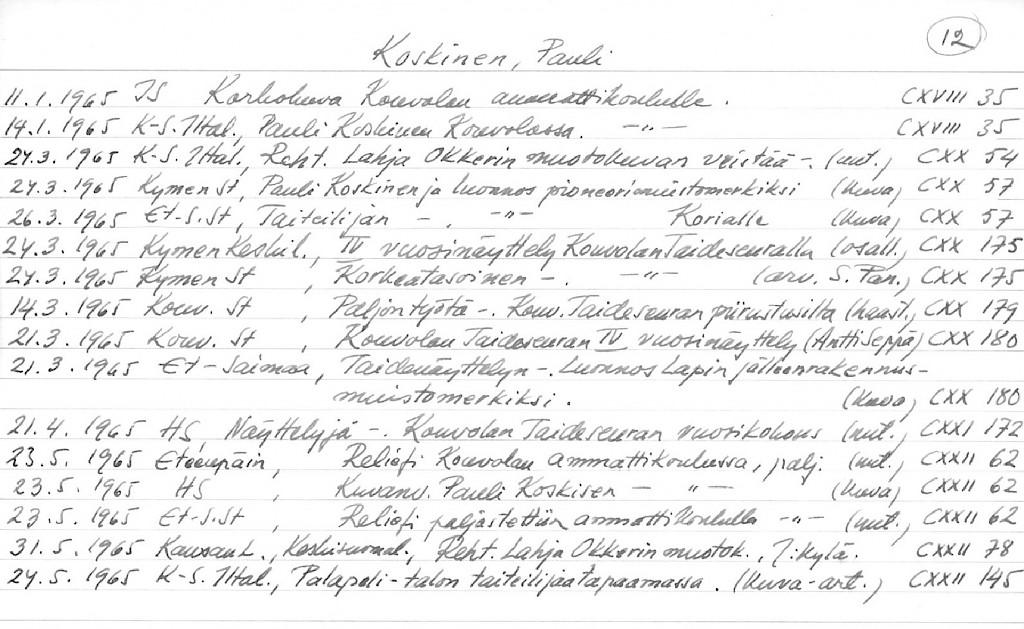 12
Koskinen, Pauli
11.1.1965 IS Korkokuva Kouvolan ammattikoululle. CXVIII 35
14.1.1965 K-S. Ital., Pauli Koskinen Kouvolassa. —"— CXVIII 35
24.3.1965 K-S. Ital., Reht. Lahja Okkerin muotokuvan veistää -. (mt.) CXX 54
24.3.1965 Kymen St, Pauli Koskinen ja luonnos pioneerimuistomerkiksi (kuva) CXX 57
26.3.1965 Et-S.St, Taiteilijan - —"— Korialle (kuva) CXX 57
24.3.1965 Kymen Keskil., IV vuosinäyttely Kouvolan Taideseuralla (osall.) CXX 175
24.3.1965 Kymen St, Korkeatasoinen -. —"— (arv. S. Pan.) CXX 175
14.3.1965 Kouv. St, Paljon työtä -. Kouv. Taideseuran piirustusilta (haast.) CXX 179
21.3.1965 Kouv. St, Kouvolan Taideseuran IV vuosinäyttely (Antti Seppä) CXX 180
21.3.1965 Et-Saimaa, Taidenäyttelyn -. Luonnos Lapin jälleenrakennus-
muistomerkiksi. (kuva) CXX 180
21.4.1965 HS, Näyttelyjä -. Kouvolan Taideseuran vuosikokous (mt.) CXXI 172
23.5.1965 Eteenpäin, Reliefi Kouvolan ammattikoulussa, palj. (mt.) CXXII 62
23.5.1965 HS, Kuvanv. Pauli Koskisen — "— (kuva) CXXII 62
23.5.1965 Et-S.St, Reliefi paljastettiin ammattikoululla —"— (mt.) CXXII 62
31.5.1965 Kansan L., Keskisuomal., Reht. Lahja Okkerin muotok., J:kylä. CXXII 78
24.5.1965 K-S. Ital., Palapeli-talon taiteilijaa tapaamassa. (kuva-art.) CXXII 145